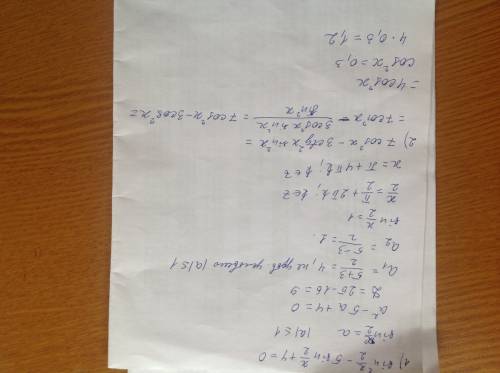 1) sin² x/2 − 5 sin x/2 + 4 = 0
sin x/2 = a |a| ≤ 1
a² − 5a + 4 = 0
D = 25 − 16 = 9
a₁ = (5+3)/2 = 4, не удов. условию |a| ≤ 1
a₂ = (5−3)/2 = 1.
sin x/2 = 1
x/2 = π/2 + 2πk; k∈Z
x = π + 4πk; k∈Z
2) 7cos²x − 3ctg²x sin²x =
= 7cos²x − 3cos²x sin²x / sin²x = 7cos²x − 3cos²x =
= 4cos²x
cos²x = 0,3
4 · 0,3 = 1,2